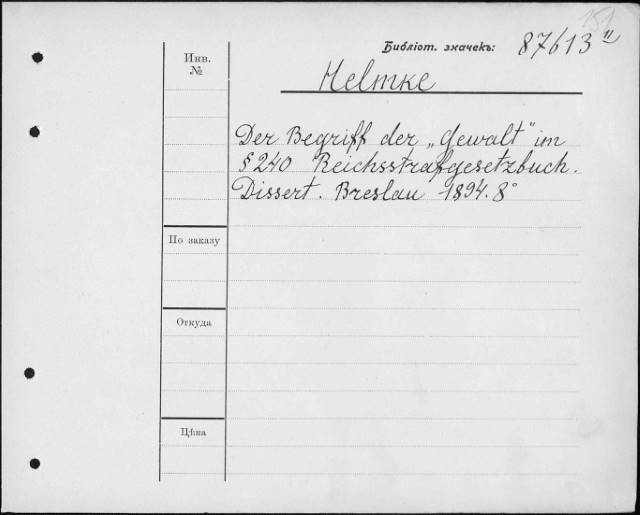 151
Библіот. значекъ: 87613 II
Инв.
№
Helmke
Der Begriff der „Gewalt" im
§ 240 Reichsstrafgesetzbuch.
Dissert. Breslau 1894. 8°
По заказу
Откуда
Цѣна